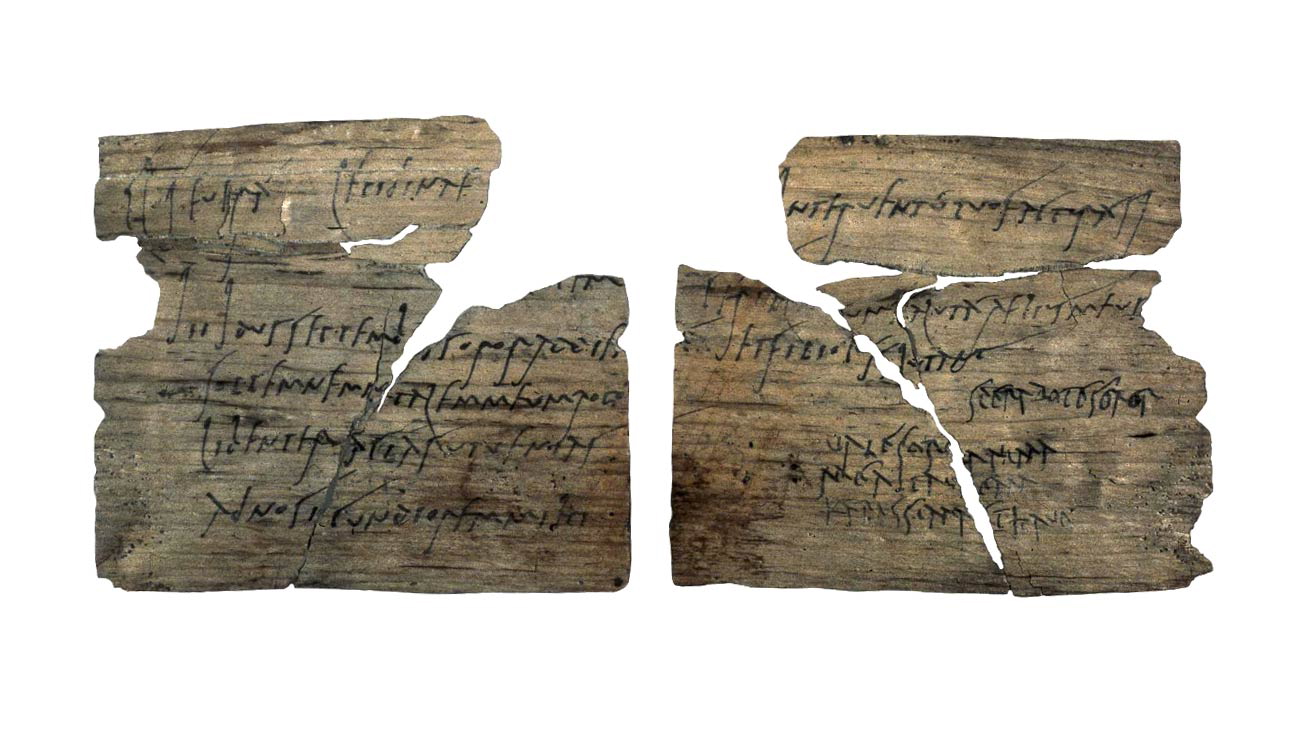 Cl Seuerá Lepidinae
iii Idus Septembr soror ad diem
sollemnem natalem meum rogo
libenter faciás ut uenias
ad nos iucundiorem mihi
interuentú tuo facturá si
Cerial uum salutá Aelius meus
et filiolus salutant
sperabo te soror
uale soror anima
mea ita ualeam
karissima et haue